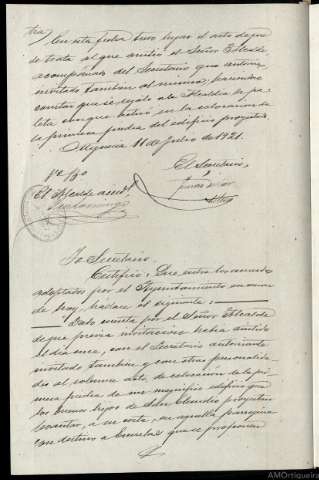 tra) En esta fecha tuvo lugar el acto de que
se trata al que asistió el Señor Alcalde
acompañado del Secretario que autoriza
invitado tambien al mismo, haciendo
constar que se regaló a la Alcaldía la pa-
leta con que actuó en la colocación de
la primera piedra del edificio proyectado.
Mugueira 11 de Julio de 1921.
Vº Bº
El Secretario,
El Alcalde accid.
Yo Secretario.
Certifico: Que entre los acuerdos
adoptados por el Ayuntamiento en sesion
de hoy, hállase el siguiente:
Dado cuenta por el Señor Alcalde
de que previa invitación había asistido
el día once, con el Secretario autorizante
invitado tambien y con otras personalida-
des al solemne acto de colocación de la pri-
mera piedra de un magnífico edificio que
los buenos hijos de San Claudio proyectan
levantar, a su costa, en aquella parroquia
con destino a Escuelas que se proponen
AMOrtigueira